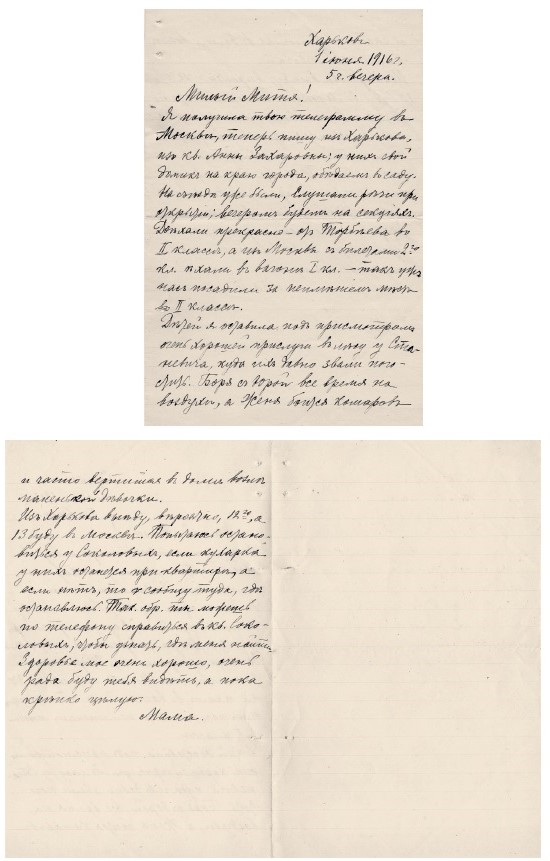 Харьковъ
1 іюня 1916 г.
5 ч. вечера.
Милый Митя!
Я получила твою телеграмму въ
Москвѣ, теперь пишу изъ Харькова,
изъ кв. Анны Захаровны; у нихъ свой
домикъ на краю города, обѣдаемъ въ саду.
На съѣздѣ уже были, слушали рѣчи при
открытіи; вечеромъ будемъ на секціяхъ.
Доѣхали прекрасно – отъ Торбѣева во
II классѣ, а изъ Москвы съ билетами 2го
кл. ѣхали въ вагонѣ I кл. – такъ ужъ
насъ посадили за неимѣніемъ мѣстъ
въ II классѣ.
Дѣтей я оставила подъ присмотромъ
очень хорошей прислуги въ у Ста-
невича, куда ихъ давно звали пого-
стить. Боря съ Зорой все время на
воздухѣ, а Женя боится комаровъ
и часто вертится въ домѣ возлѣ
маленькой дѣвочки.
Изъ Харькова выѣду, вѣроятно, 12го, а
13 буду въ Москвѣ. Попытаюсь остано-
виться у Соколовыхъ, если кухарка
у нихъ останется при квартирѣ, а
если нѣтъ, то я сообщу туда, гдѣ
остановлюсь. Так. обр. ты можешь
по телефону справиться въ кв. Соко-
ловыхъ, чтобы узнать, гдѣ меня найти.
Здоровье мое очень хорошо, очень
рада буду тебя видѣть, а пока
крѣпко цѣлую.
Мама.